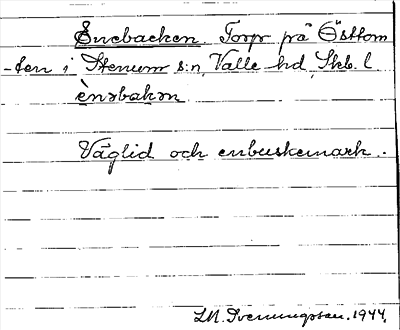 Enebacken. Torp på Östtom
-ten i Stenum s:n, Valle hd, Skb. l
ènəbakən
Väglid och enbuskemark.
I.M. Svenungsson. 1944.